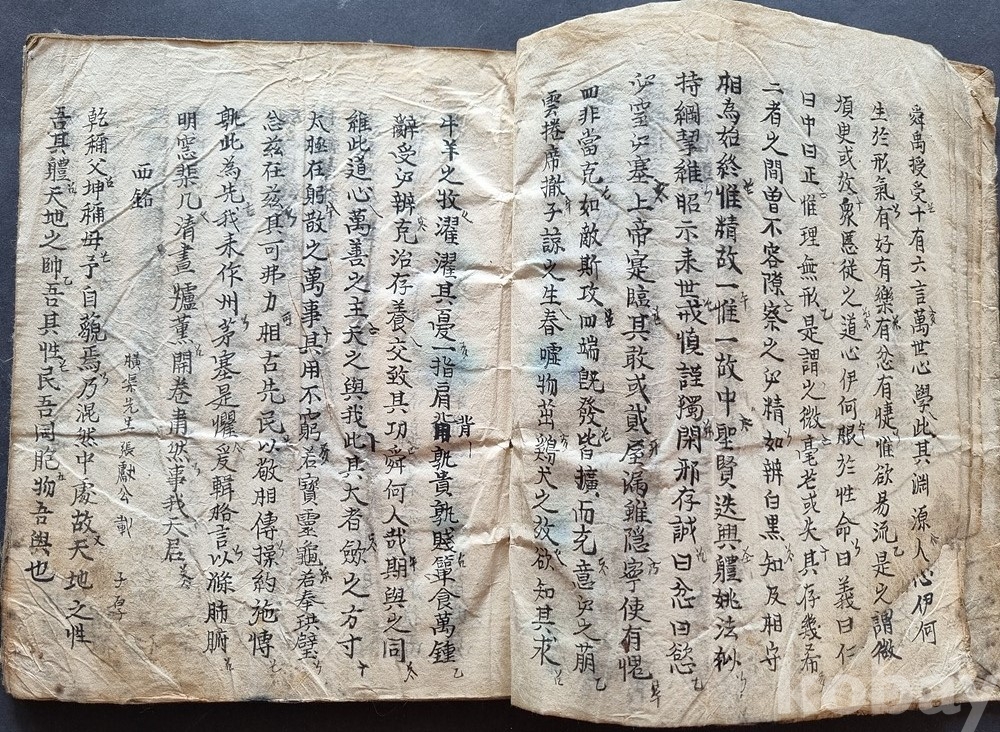 舜禹授受十有六言萬世心學此其淵源人心伊何
生於形氣有好有樂有忿有懥惟欲易流是之謂微
須史或放衆慝從之道心伊何眼於性命曰義曰仁
曰中曰正惟理無形是謂之微毫芒或失其存幾希
二者之間曽不容隙察之必精如辨白黒知及相守
相為始終惟精故一惟一故中聖賢迭興軆姚法姒
持綱挈維昭示来世戒慎謹獨閑邪存誠曰忿曰慾
必窒必塞上帝寔臨其敢或貳屋漏雖隠寧使有愧
四非當克如敵斯攻四端旣發皆擴而充意必之萌
雲捲席撤子諒之生春噓物茁鷄犬之放欲知其求
牛羊之牧濯濯其憂一指肩背孰貴孰賤簞食萬鍾
背
辭受必辨克治存養交致其功舜何人哉期與之同
維此道心萬善之主天之與我此其大者斂之方寸
太極在躬散之萬事其用不窮若寶靈龜若奉珙璧
念茲在茲其可弗力相古先民以敬相傳操約施愽
孰此為先我来作州茅塞是懼爰輯格言以滌肺腑
明窓棐几清晝爐薰開卷肅然事我天君
西銘
橫渠先生張獻公載 子厚
乾稱父坤稱母予自藐焉乃混然中處故天地之性
吾其軆天地之帥吾其性民吾同胞物吾與也
kobay